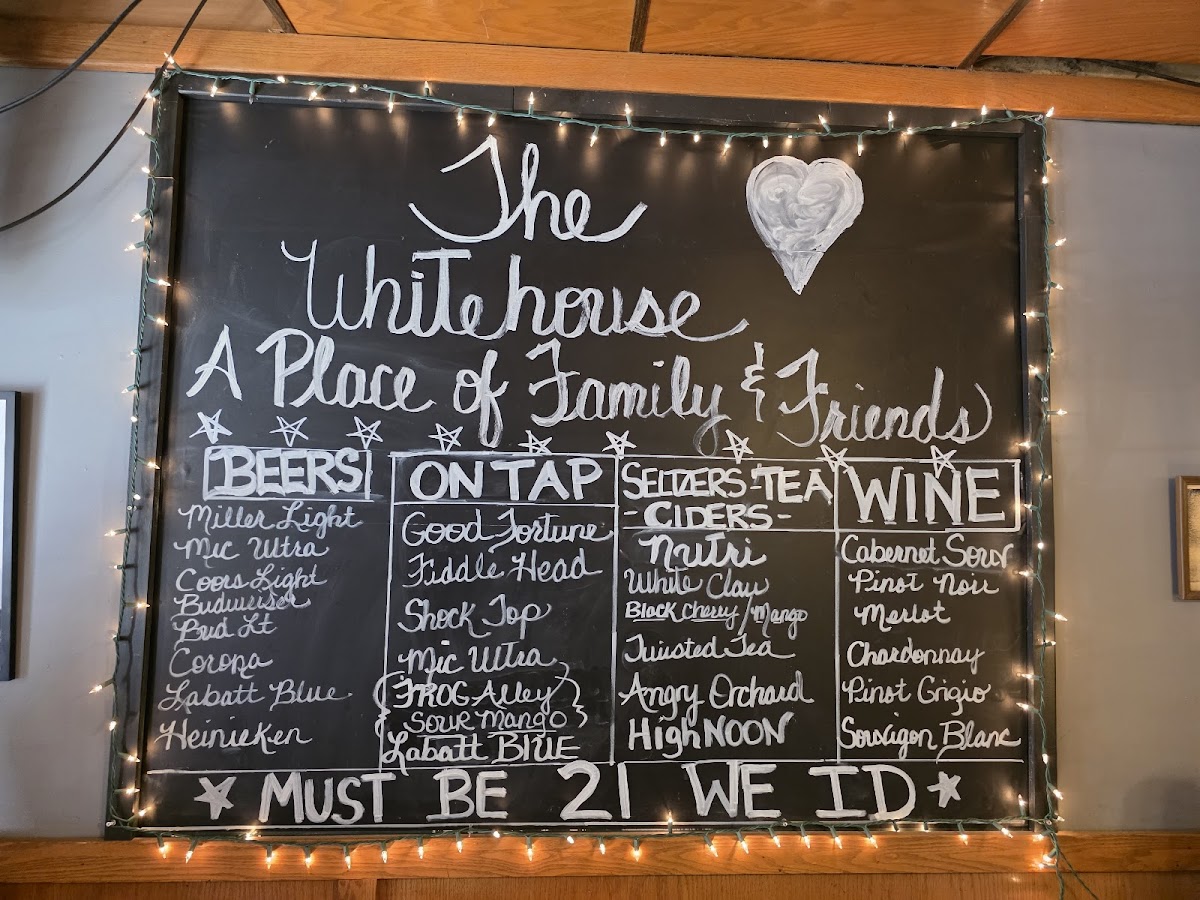 The
Whitehouse
A Place of Family & Friends
BEERS
Miller Light
Mic Ultra
Coors Light
Budweiser
Bud Lt
Corona
Labatt Blue
Heinieken
ON TAP
Good Fortune
Fiddle Head
Shock Top
Mic Ultra
FROG Alley
Sour Mango
Labatt BlUE
SELTZERS-TEA
-CIDERS-
Nutri
White Claw
Black Cherry/Mango
Twisted Tea
Angry Orchard
HighNOON
WINE
Cabernet Souv
Pinot Noir
Merlot
Chardonnay
Pinot Grigio
Sauvigon Blanc
MUST BE 21 WE ID